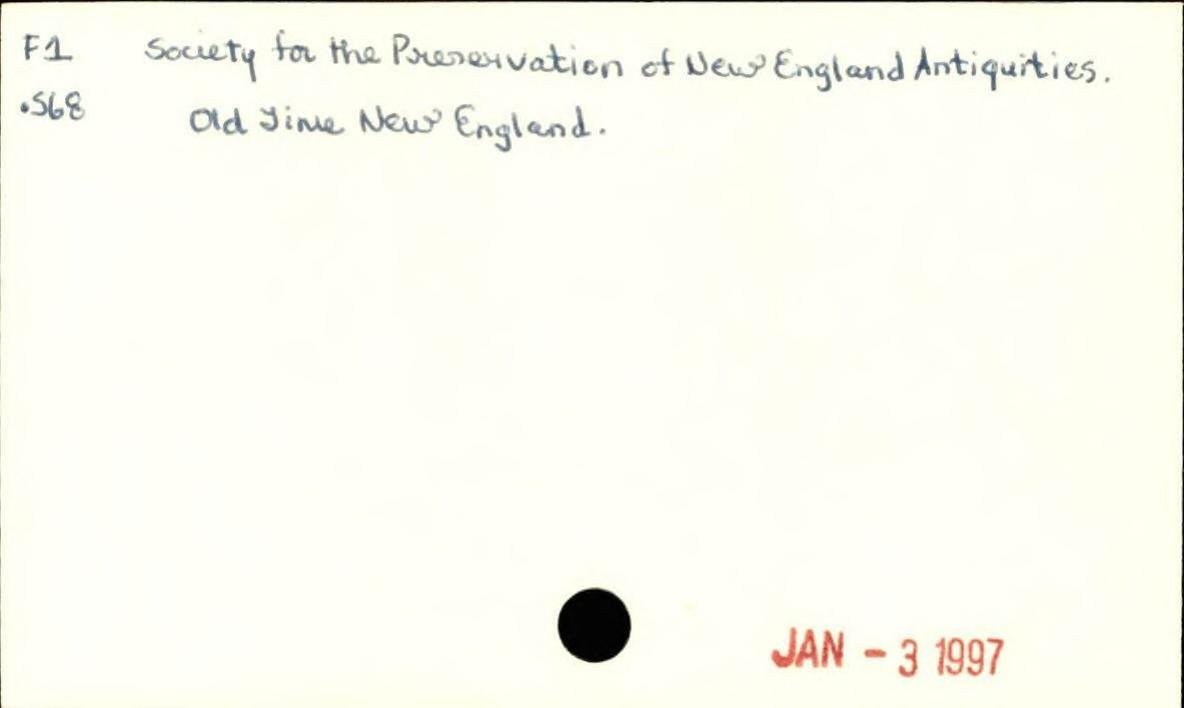 F1 Society for the Preservation of New England Antiquities.
.S68 Old Time New England.
JAN - 3 1997